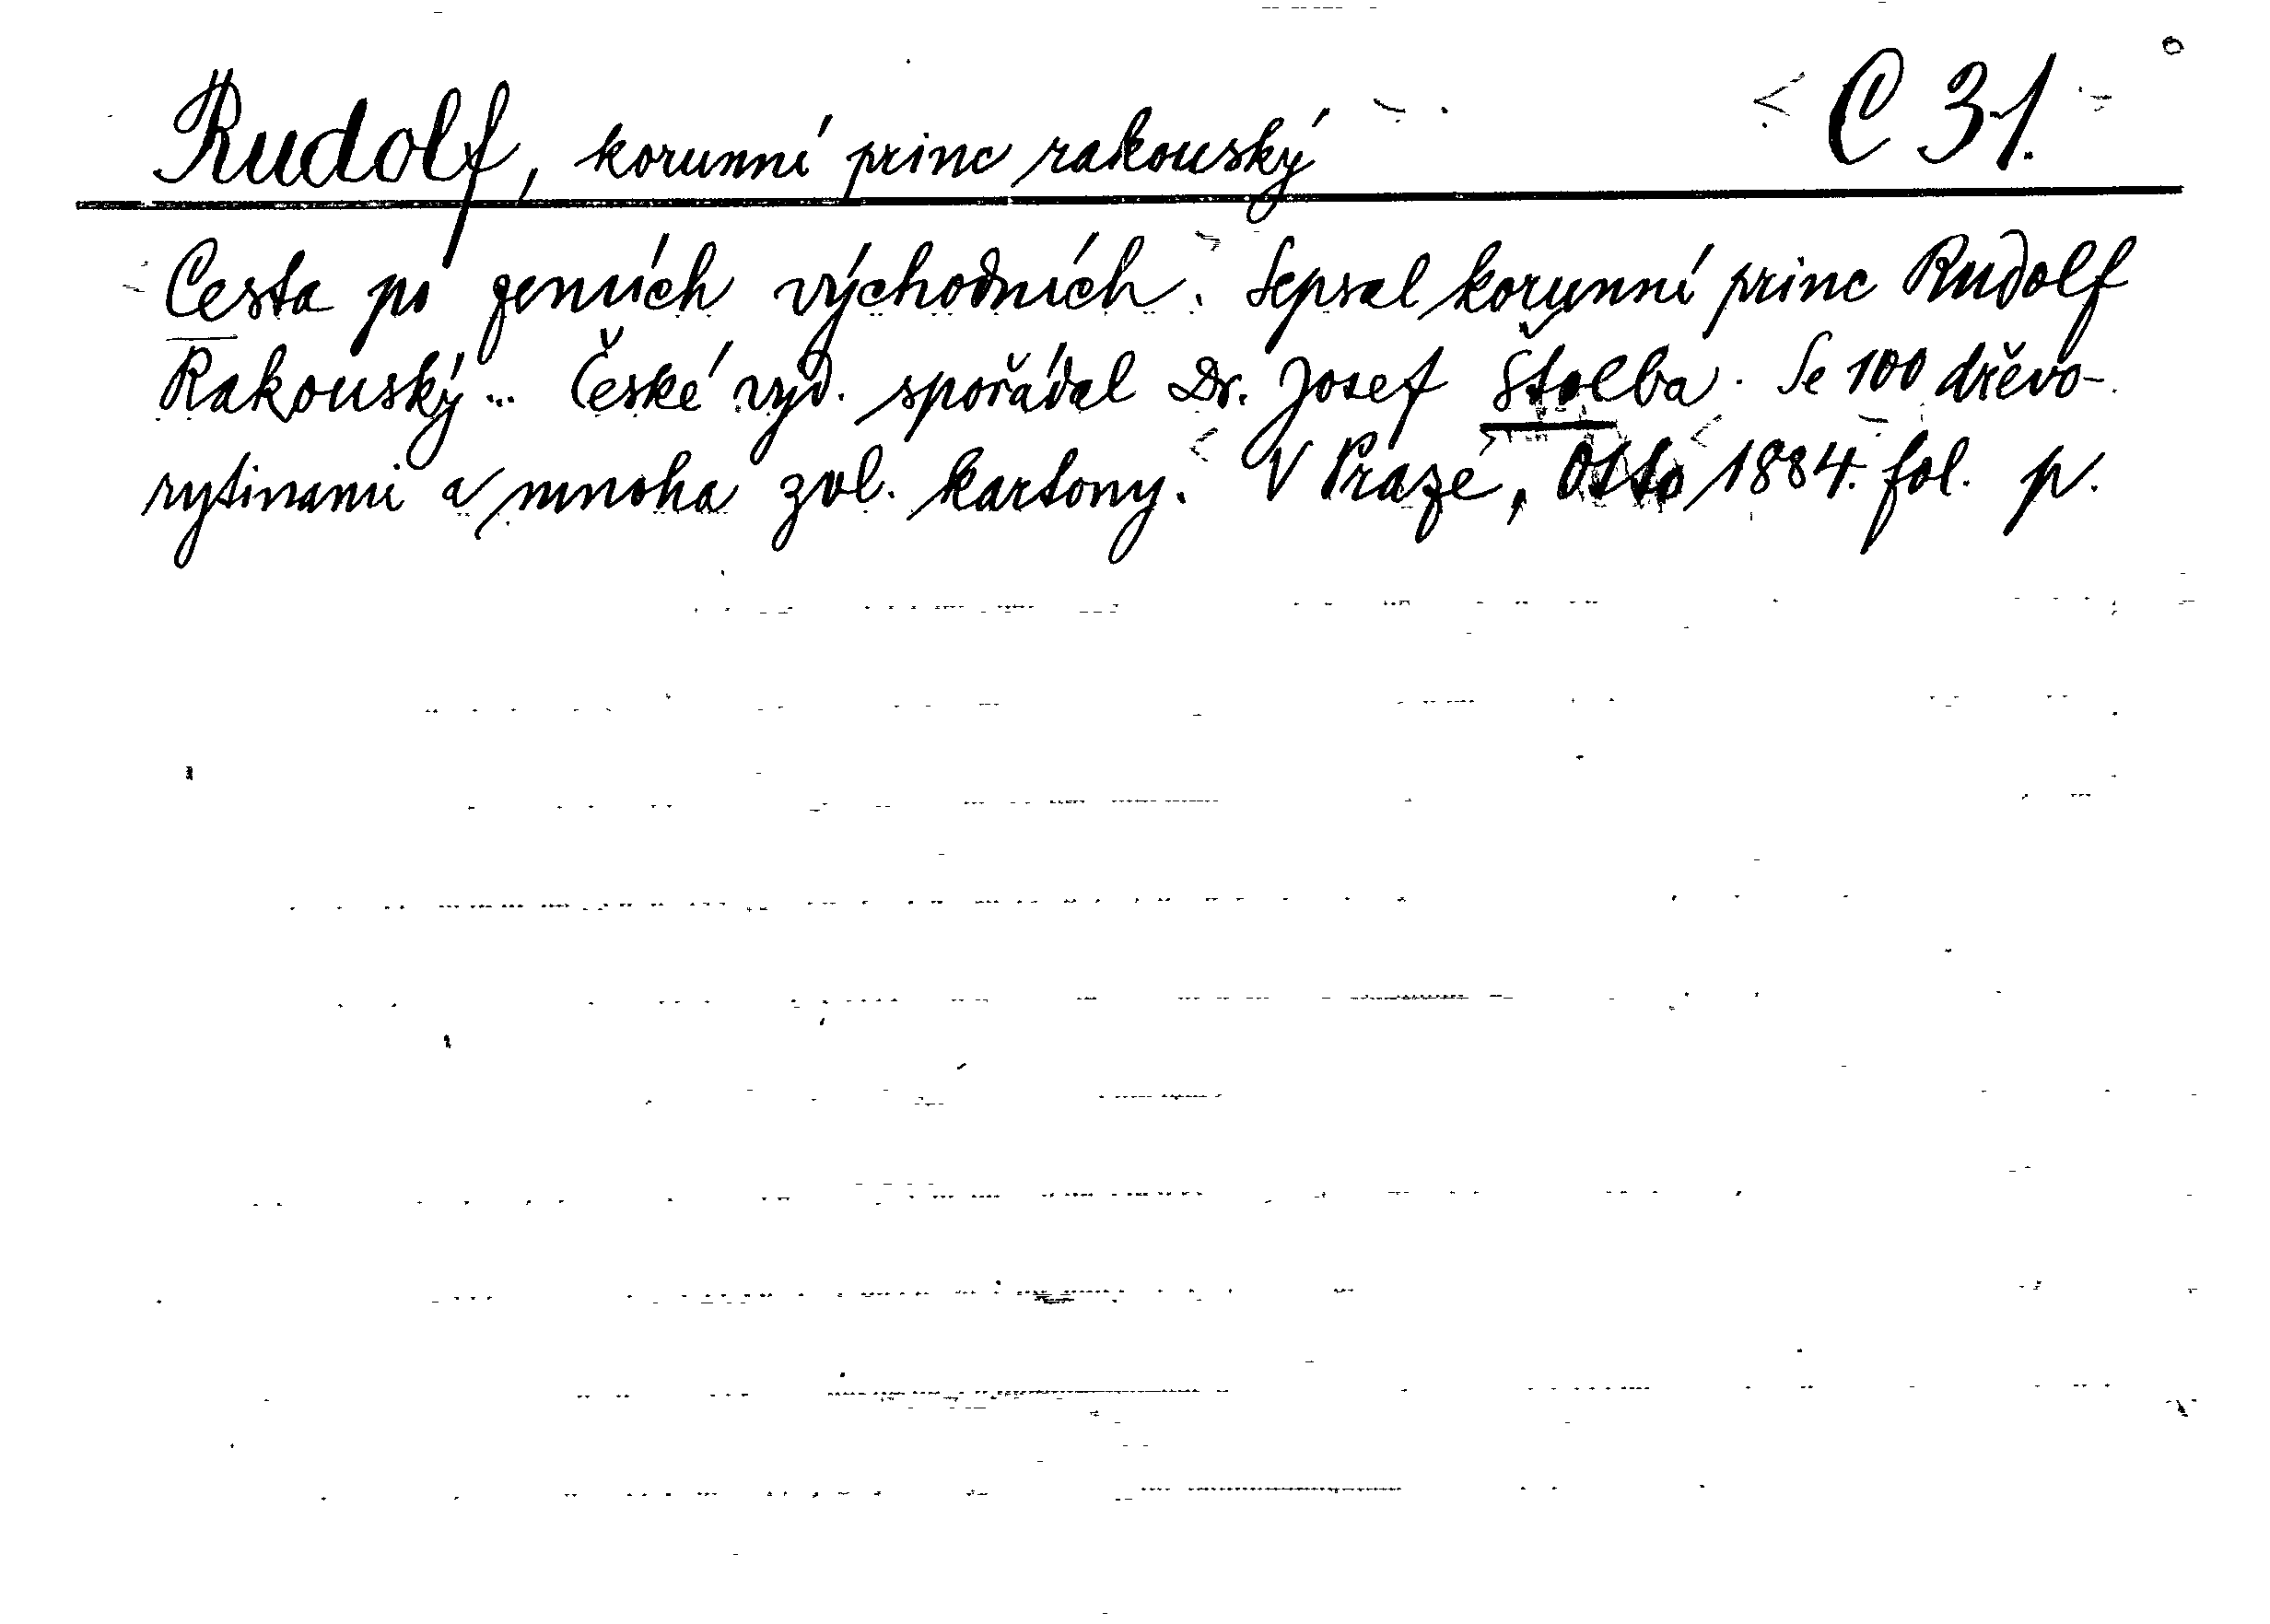 Rudolf, korunní princ rakouský C 31.
Cesta po zemích východních. Sepsal korunní princ Rudolf
Rakouský... České vyd. spořádal Dr. Josef Štolba. Se 100 dřevo-
rytinami a mnoha zvl. kartony. V Praze, Otto 1884. fol. p.